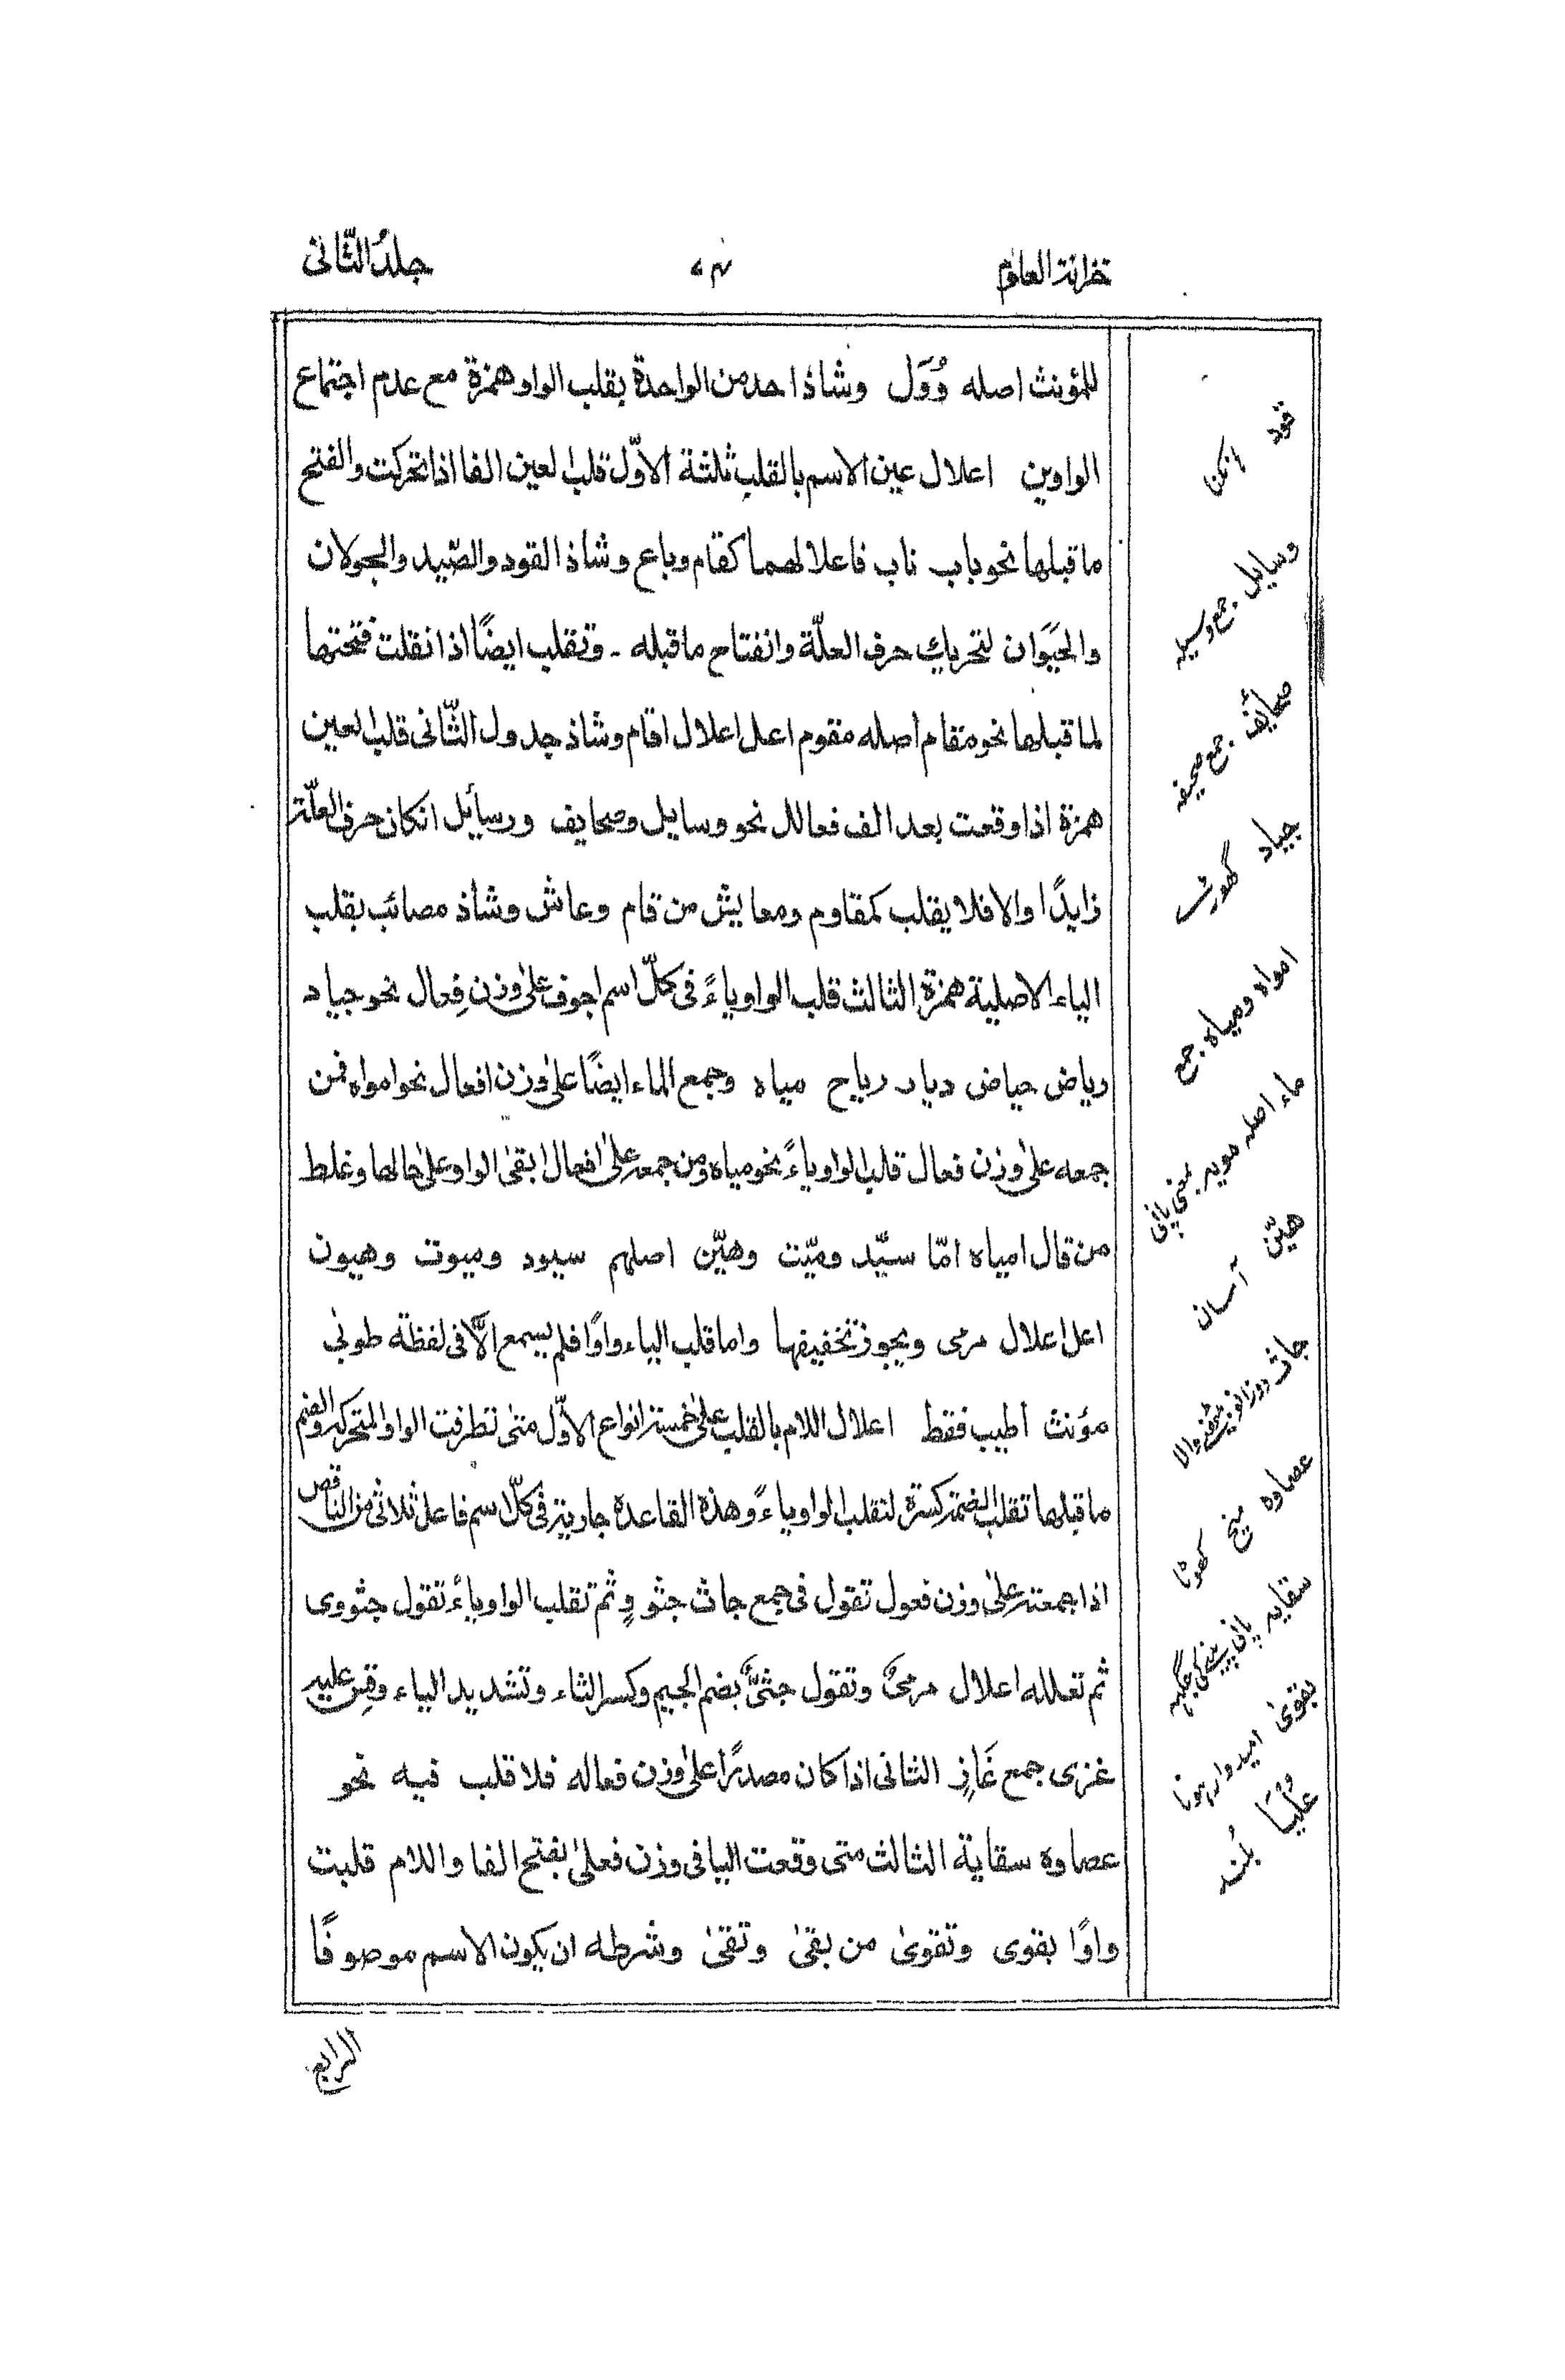 خزانة العلوم
۷۴
جلدُ الثّانی
للمؤنث اصله وُوَل وشاذ احد من الواحدة بقلب الواو همزة مع عدم اجتماع
الواوین اعلال عین الاسم بالقلب ثلثة الاوّل قلب العین الفا اذا تحرکت والفتح
ما قبلها نحو باب ناب فاعلالهما کقام وباع وشاذ القود والصَّید والجولان
والحَیَوَان لتحریك حرف العلّة وانفتاح ما قبله - وتقلب ایضًا اذا نقلت فتحتها
لما قبلها نحو مقام اصله مقوم اعل اعلال اقام وشاذ جدول الثّانی قلب العین
همزة اذا وقعت بعد الف فعالل نحو وسایل وصحایف ورسأیل انکان حرف العلّة
زایدًا والا فلا یقلب کمقاوم ومعایش من قام وعاش وشاذ مصائب بقلب
الیاء الاصلیة همزة الثالث قلب الواو یاءً فی کلّ اسم اجوف علیٰ وزن فِعال نحو جیاد
ریاض حیاض دیار ریاح میاه وجمع الماء ایضًا علیٰ وزن افعال نحو امواه فمن
جمعه علیٰ وزن فعال قلب الواو یاءً نحو میاه ومن جمعه علیٰ افعال ابقیٰ الواو علیٰ حالها وغلط
من قال امیاه امّا سیّد ومیّت وهیّن اصلهم سیود ومیوت وهیون
اعل اعلال مرمی ویجوز تخفیفها واما قلب الیاء واوًا فلم یسمع الّا فی لفظة طوبیٰ
مؤنث اطیب فقط اعلال اللام بالقلب علیٰ خمسة انواع الاوّل متیٰ تطرفت الواو المتحرکة والضم
ما قبلها تقلب الضمة کسرة لتقلب الواو یاءً وهذه القاعدة جاریة فی کلّ اسم فاعل ثلاثی من الناقص
اذا جمعته علیٰ وزن فعول تقول فی جمع جاث جثو وٍ ثم تقلب الواو یاءً تقول جثووی
ثم تعلله اعلال مرمیٌ وتقول جثیٌّ بضم الجیم وکسر الثاء وتشدید الیاء وقِس علیه
غزی جمع غَازٍ الثانی اذا کان مصدرًا علیٰ وزن فعاله فلا قلب فیه نحو
عصاوه سقایة الثالث متی وقعت الیا فی وزن فعلیٰ بفتح الفا واللام قلبت
واوًا بقوی وتقویٰ من بقیٰ وتقیٰ وشرطه ان یکون الاسم موصوفًا
قود
وسایل جمع وسیله
صحائف جمع صحیفه
جیاد گھوڑے
امواه ومیاه جمع
ماء اصله مویه بمعنی پانی
هیّن آسان
جاث دوزانو بیٹھنے والا
عصاوه میخ کھوٹا
سقایه پانی پینے کی جگہہ
بقویٰ امیدوار ہونا
عُلْیَا بُلند
الرابع